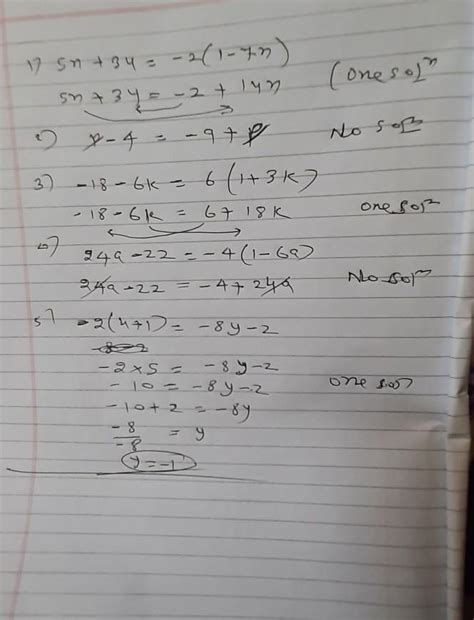 1) 5n + 34 = -2(1-7n)
5n + 34 = -2 + 14n (one solⁿ)
2) p-4 = -9+p No solⁿ
3) -18-6k = 6(1+3k)
-18-6k = 6+18k one solⁿ
24a-22 = -4(1-6a)
24a-22 = -4+24a No solⁿ
5) -2(4+1) = -8y-2
-2×5 = -8y-2
-10 = -8y-2 one solⁿ
-10+2 = -8y
-8/-8 = y
y = -1